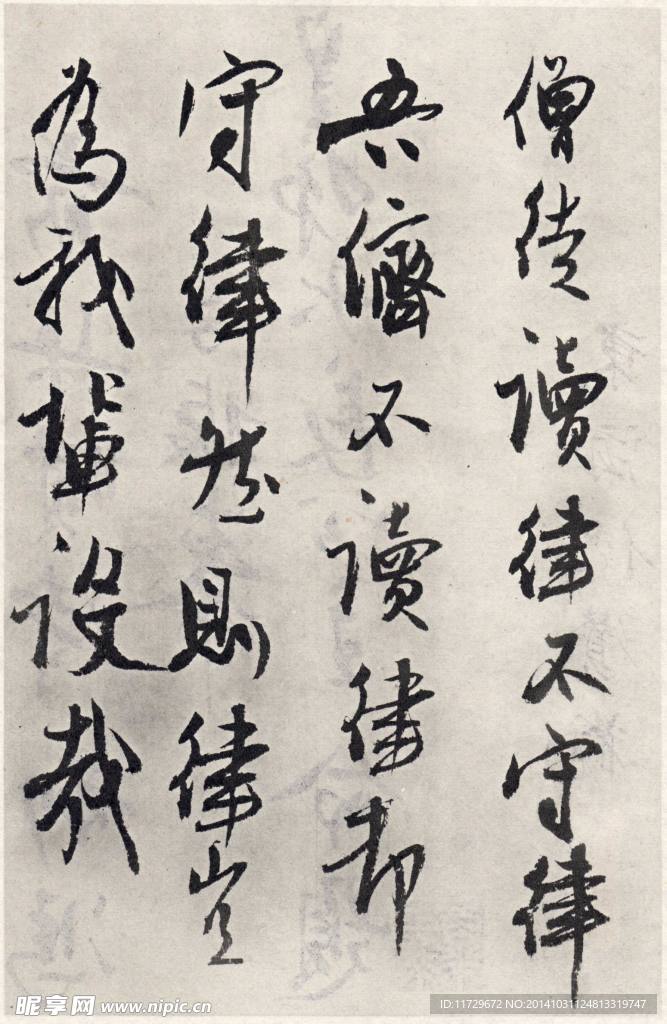 僧徒讀律不守律
吾儕不讀律却
守律然則律豈
為我輩設哉
昵享网 www.nipic.cn
ID:11729672 NO:20141031124813319747